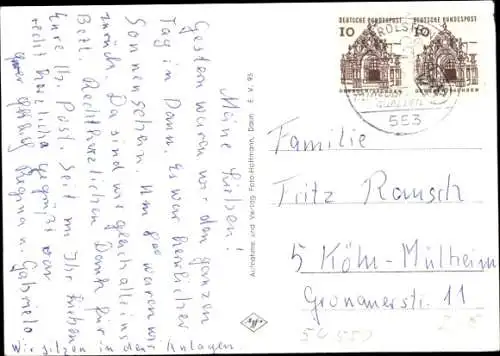 Meine Lieben!
Gestern waren wir den ganzen
Tag in Daun. Es war herrlicher
Sonnenschein. Um 8°° waren wir
zurück. Da sind wir gleich alle ins
Bett. Recht herzlichen Dank für
Eure lb. Post. Seit Ihr lieben
recht herzlich gegrüßt von
Regina u. Gabriele
Wir sitzen in den Anlagen.
Aufnahme und Verlag Foto-Hoffmann, Daun E. V. 95
DEUTSCHE BUNDESPOST
10
DEUTSCHE BUNDESPOST
10
553
Familie
Fritz Rausch
5 Köln-Mülheim
Gronauerstr. 11